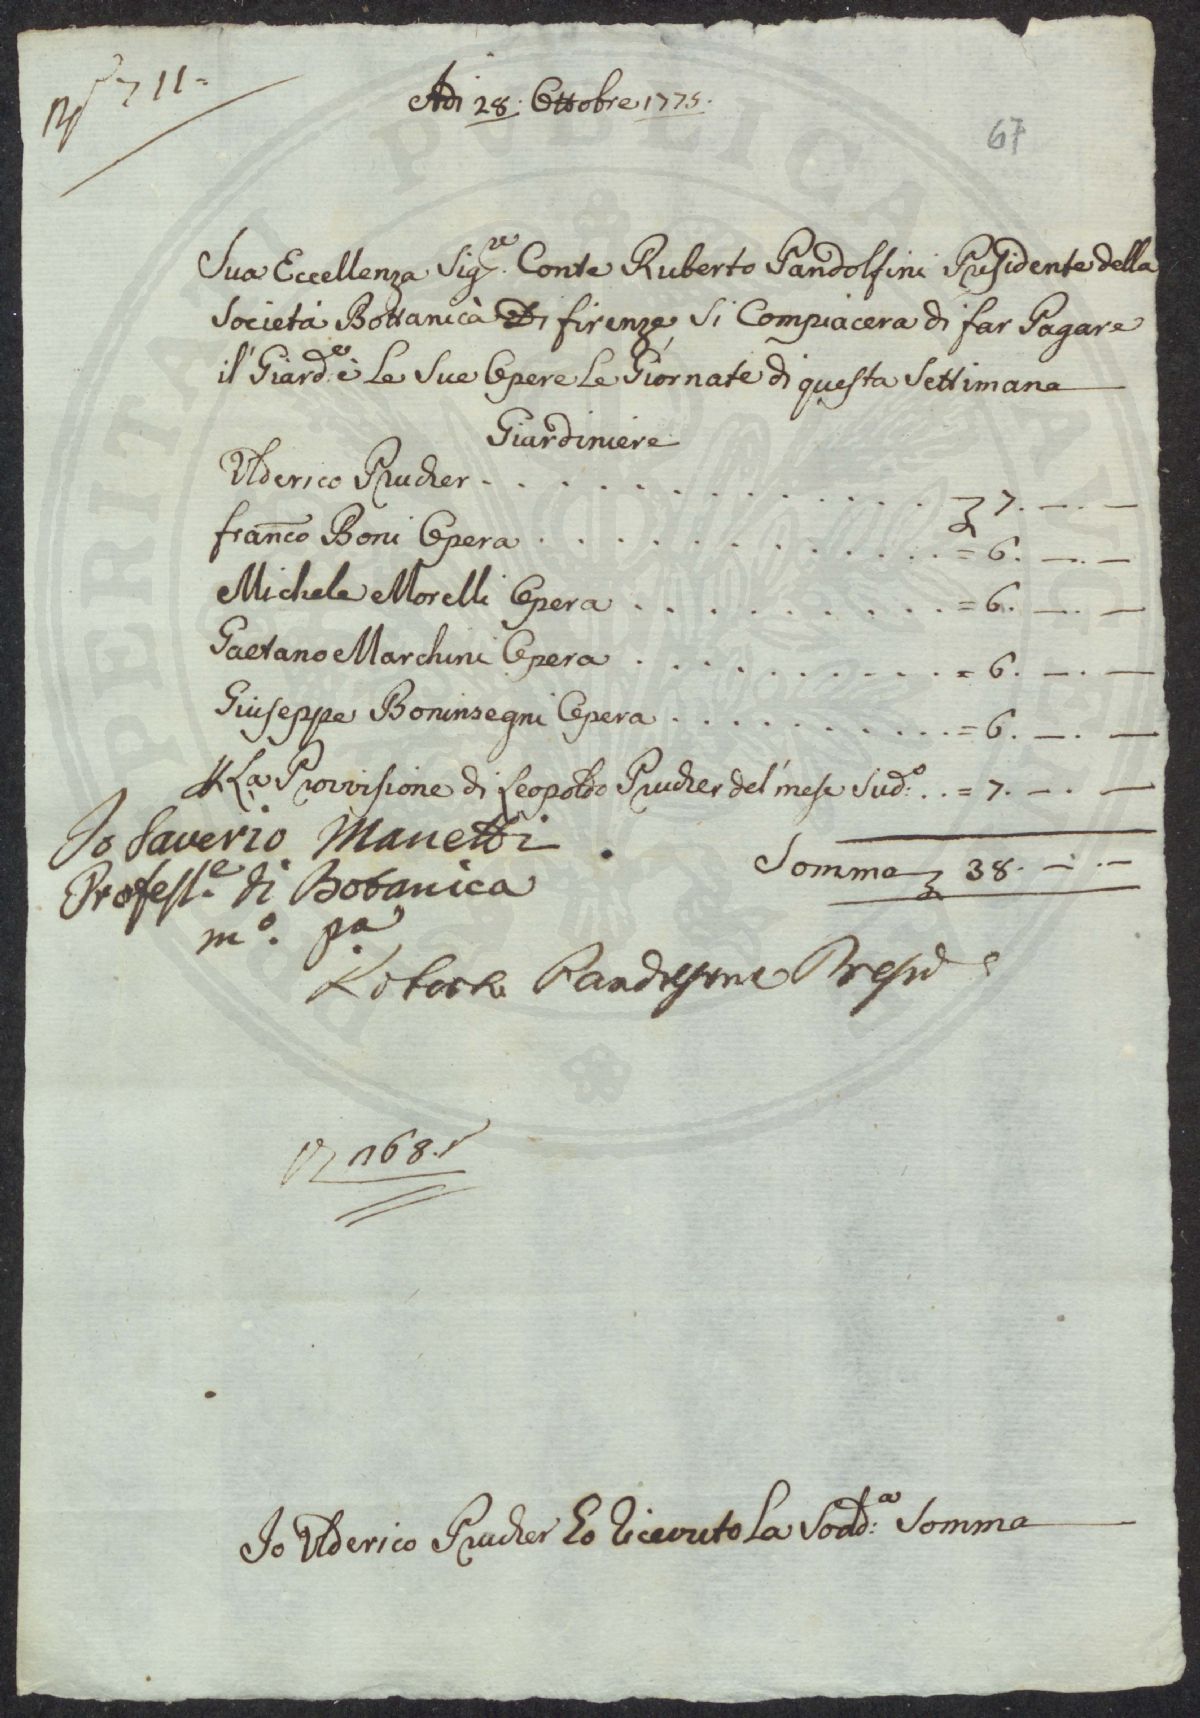 711=
Adi 28: Ottobre 1775.
67
Sua Eccellenza Sig.re Conte Ruberto Pandolfini Presidente della
Società Bottanicà Di firenze si Compiacera di far Pagare
il Giard:e è Le Sue Opere Le Giornate di questa Settimana
Giardiniere
Ulderico Prucher . . . . . . . . . . . . . 7. — . —
Franco Boni Opera . . . . . . . . . . . . = 6. — . —
Michele Morelli Opera . . . . . . . . . . = 6. — . —
Gaetano Marchini Opera . . . . . . . . . . = 6. — . —
Giuseppe Boninsegni Opera . . . . . . . . . = 6. — . —
La Provvisione di Leopoldo Prucher del mese Sud:o . . = 7. — . —
Somma 38. — . —
Io Saverio Manetti
Profess.e di Botanica
m.o pa
Roberto Pandolfini Presid.e
168.
Io Ulderico Prucher Eo Ricevuto La Sodd:a Somma
PERITAT PUBLICA AVCT